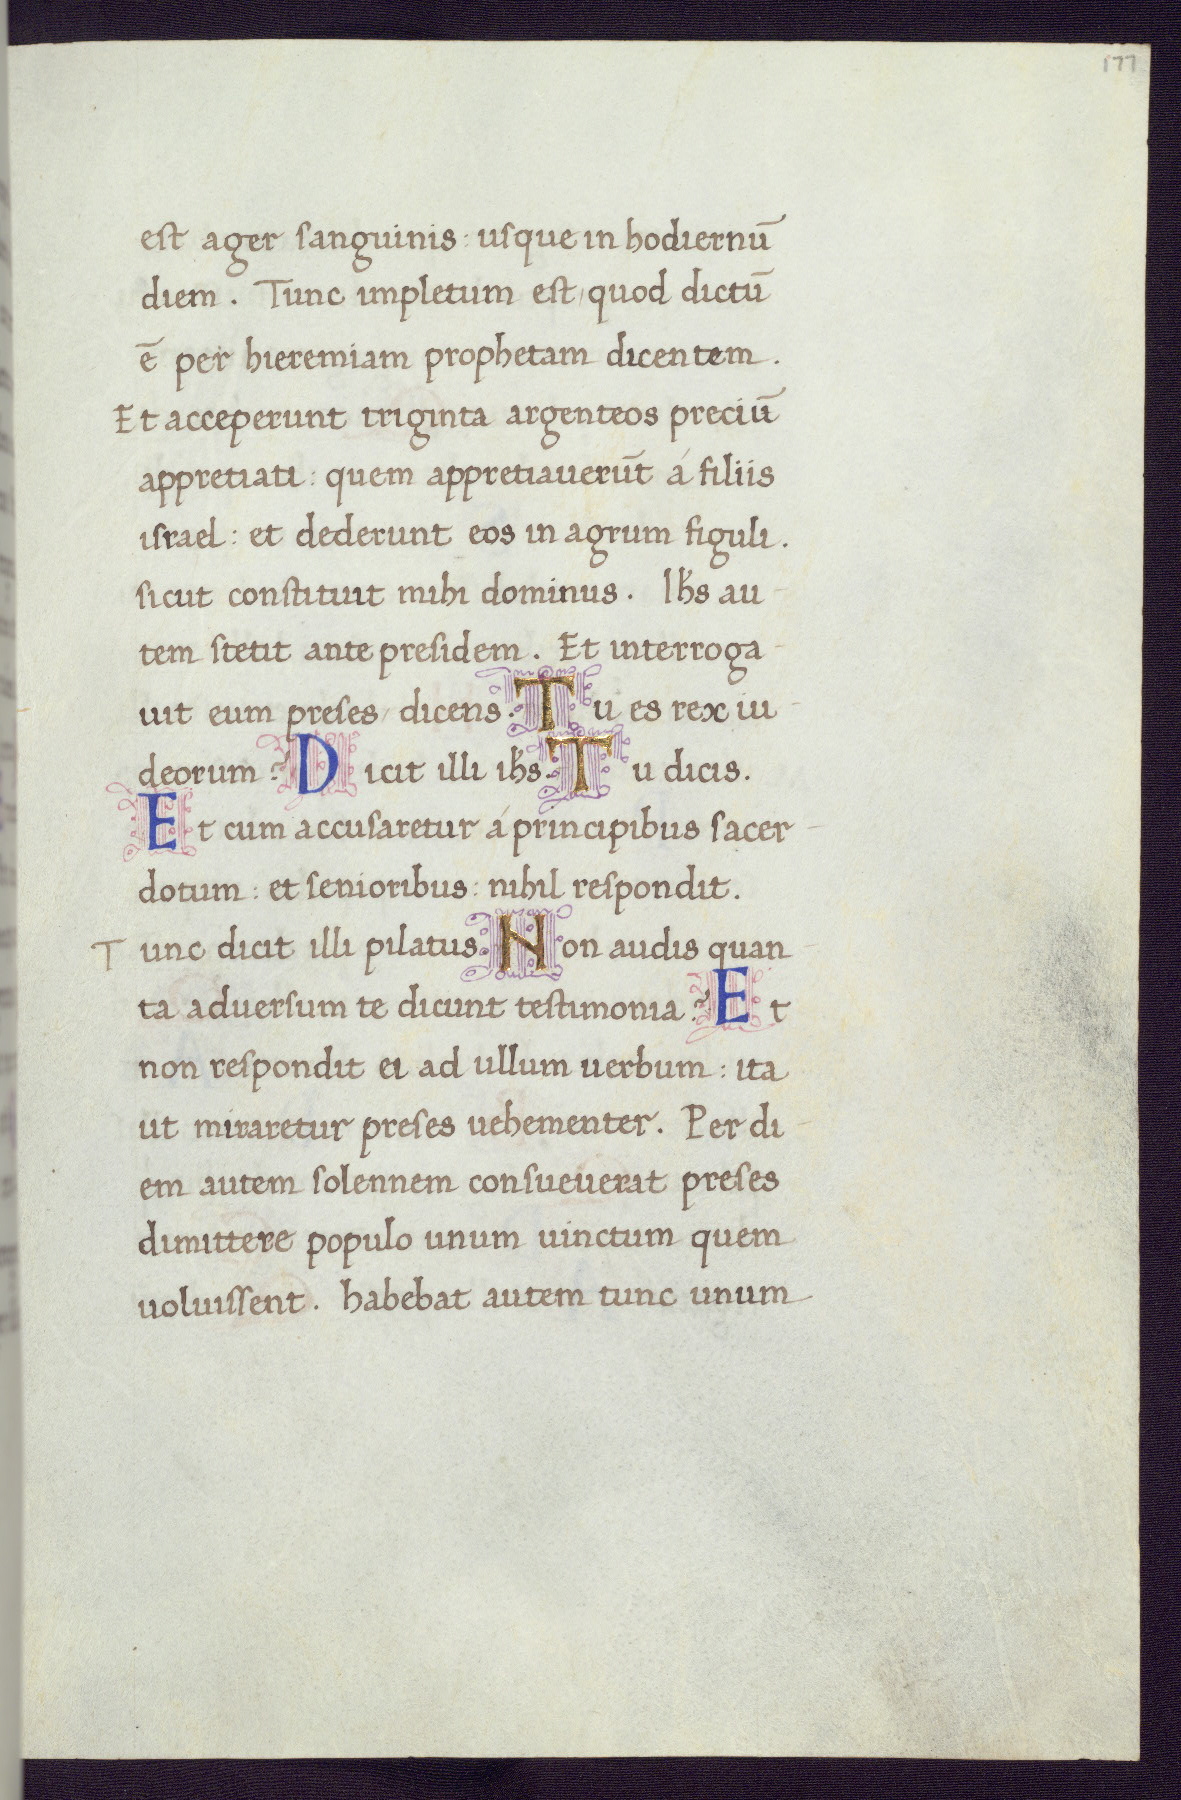 177
est ager sanguinis : usque in hodiernū
diem . Tunc impletum est, quod dictū
ē per hieremiam prophetam dicentem .
Et acceperunt triginta argenteos preciū
appretiati : quem appretiauerūt á filiis
israel : et dederunt eos in agrum figuli .
sicut constituit mihi dominus . Ihs au-
tem stetit ante presidem . Et interroga-
uit eum preses, dicens . Tu es rex iu-
deorum ? Dicit illi ihs . Tu dicis .
Et cum accusaretur á principibus sacer-
dotum : et senioribus : nihil respondit .
Tunc dicit illi pilatus . Non audis quan-
ta aduersum te dicunt testimonia ? Et
non respondit ei ad ullum uerbum : ita
ut miraretur preses uehementer . Per di-
em autem solennem consueuerat preses
dimittere populo unum uinctum quem
uoluissent . habebat autem tunc unum